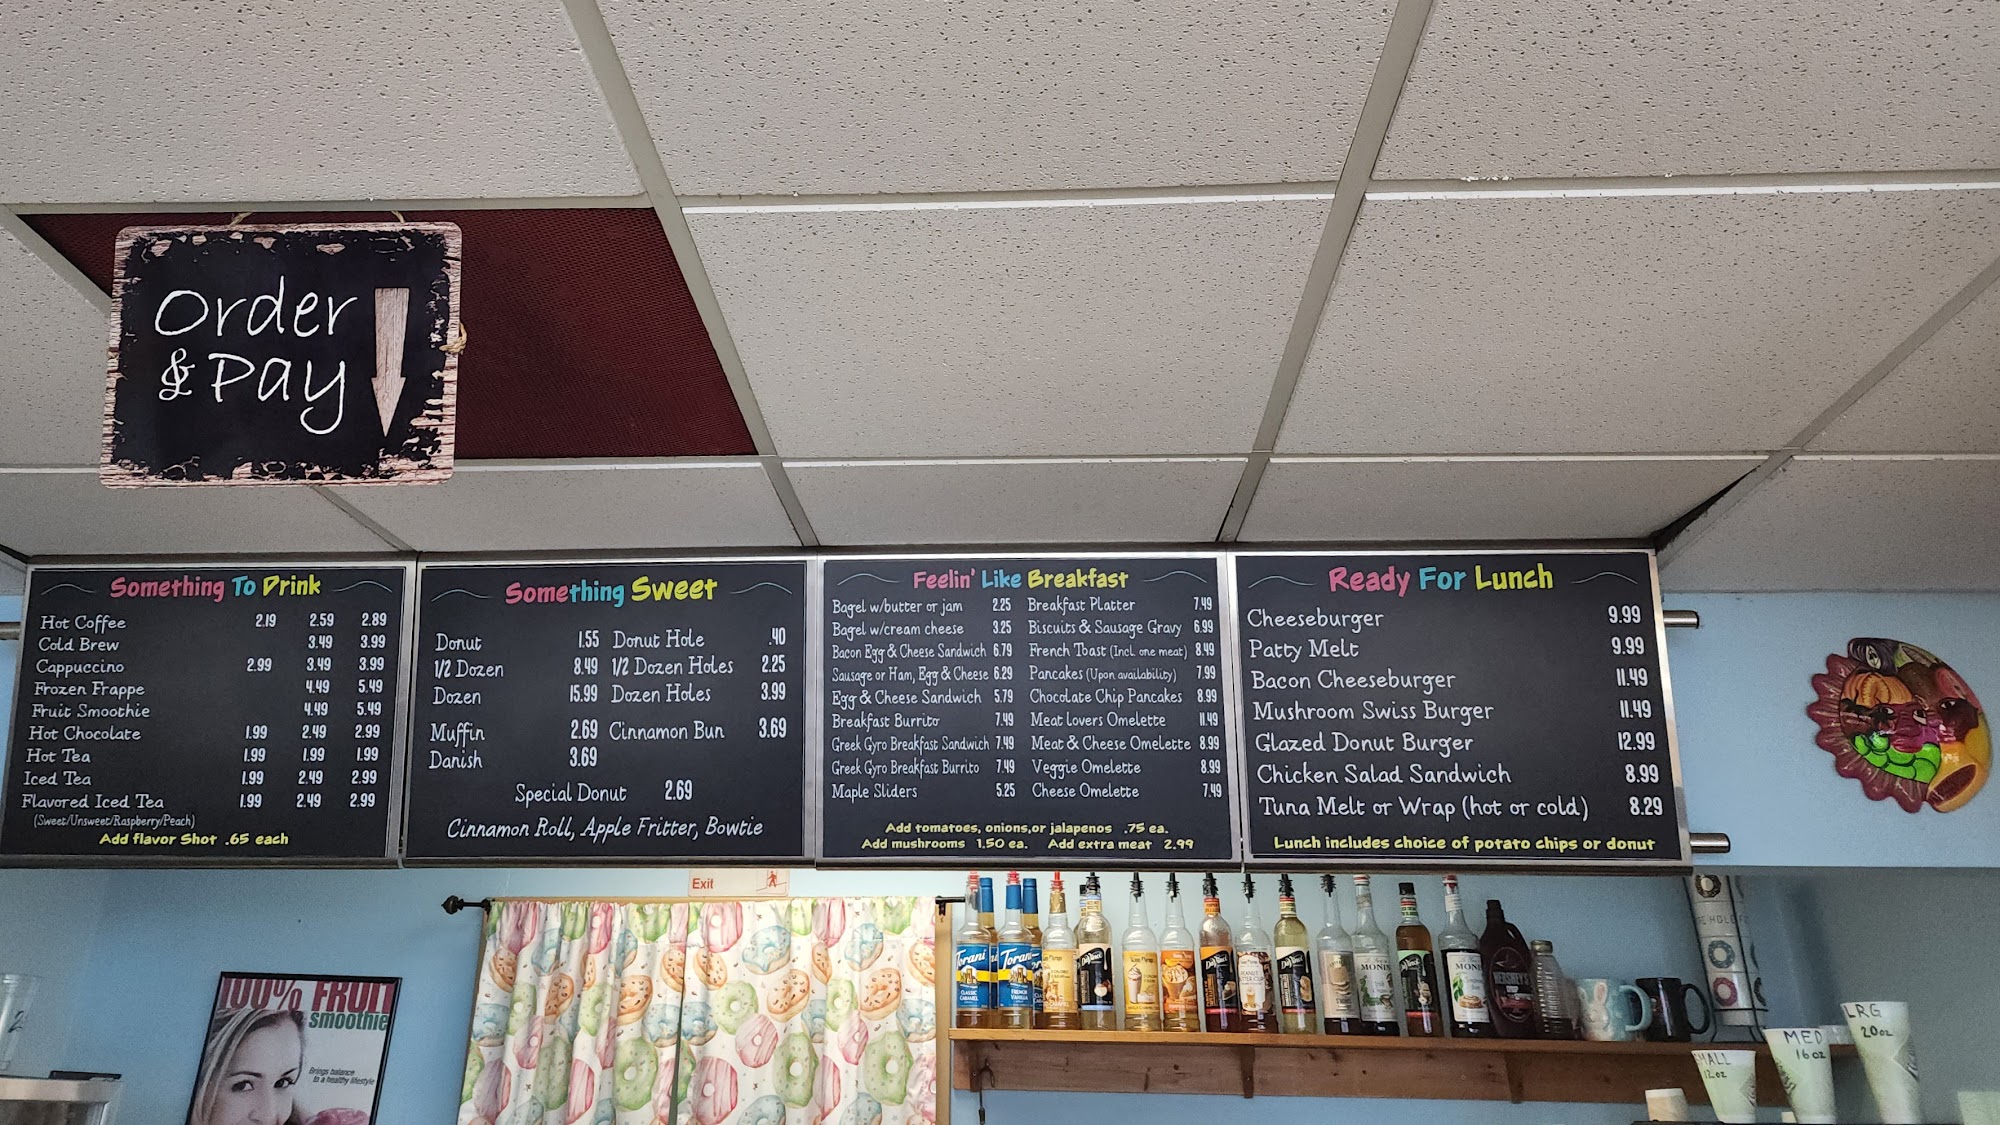 Order
& Pay
Something To Drink
Hot Coffee 2.19 2.59 2.89
Cold Brew 3.49 3.99
Cappuccino 2.99 3.49 3.99
Frozen Frappe 4.49 5.49
Fruit Smoothie 4.49 5.49
Hot Chocolate 1.99 2.49 2.99
Hot Tea 1.99 1.99 1.99
Iced Tea 1.99 2.49 2.99
Flavored Iced Tea 1.99 2.49 2.99
(Sweet/Unsweet/Raspberry/Peach)
Add flavor Shot .65 each
Something Sweet
Donut 1.55 Donut Hole .40
1/2 Dozen 8.49 1/2 Dozen Holes 2.25
Dozen 15.99 Dozen Holes 3.99
Muffin 2.69 Cinnamon Bun 3.69
Danish 3.69
Special Donut 2.69
Cinnamon Roll, Apple Fritter, Bowtie
Feelin' Like Breakfast
Bagel w/butter or jam 2.25 Breakfast Platter 7.49
Bagel w/cream cheese 3.25 Biscuits & Sausage Gravy 6.99
Bacon Egg & Cheese Sandwich 6.79 French Toast (Incl. one meat) 8.49
Sausage or Ham, Egg & Cheese 6.29 Pancakes (Upon availability) 7.99
Egg & Cheese Sandwich 5.79 Chocolate Chip Pancakes 8.99
Breakfast Burrito 7.49 Meat Lovers Omelette 11.49
Greek Gyro Breakfast Sandwich 7.49 Meat & Cheese Omelette 8.99
Greek Gyro Breakfast Burrito 7.49 Veggie Omelette 8.99
Maple Sliders 5.25 Cheese Omelette 7.49
Add tomatoes, onions,or jalapenos .75 ea.
Add mushrooms 1.50 ea. Add extra meat 2.99
Ready For Lunch
Cheeseburger 9.99
Patty Melt 9.99
Bacon Cheeseburger 11.49
Mushroom Swiss Burger 11.49
Glazed Donut Burger 12.99
Chicken Salad Sandwich 8.99
Tuna Melt or Wrap (hot or cold) 8.29
Lunch includes choice of potato chips or donut
Exit
100% FRUIT
smoothie
Brings balance
to a healthy lifestyle
Torani
CLASSIC
CARAMEL
Torani
FRENCH
VANILLA
DaVinci
DaVinci
DaVinci
DaVinci
MONIN
MONIN
HERSHEY'S
LRG
20oz
MED
16oz
SMALL
12oz